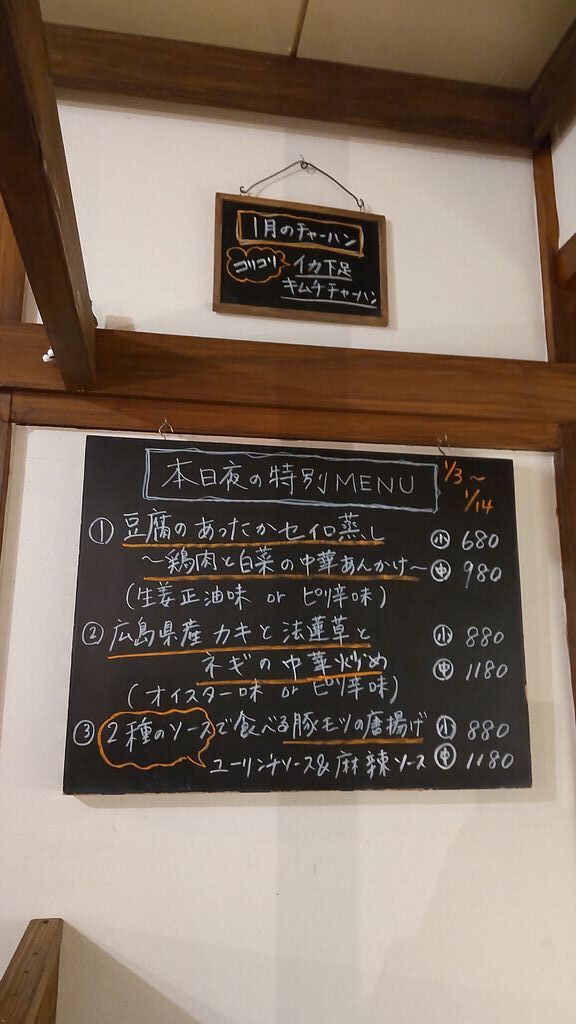 1月のチャーハン
コリコリ イカ下足
キムチチャーハン
本日夜の特別MENU
1/3~
1/14
① 豆腐のあったかセイロ蒸し 小 680
~鶏肉と白菜の中華あんかけ~ 中 980
(生姜正油味 or ピリ辛味)
② 広島県産カキと法蓮草と 小 880
ネギの中華炒め 中 1180
(オイスター味 or ピリ辛味)
③ 2種のソースで食べる豚モツの唐揚げ 小 880
ユーリンチソース&麻辣ソース 中 1180